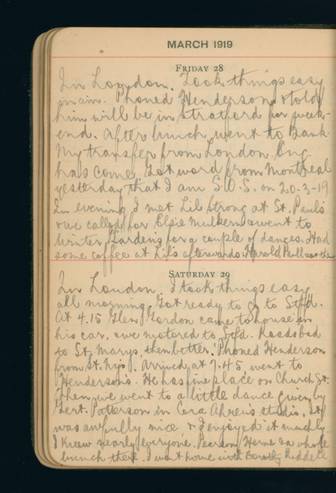 MARCH 1919
FRIDAY 28
In London. Took things easy
in a.m. Phoned Henderson & told
him will be in Stratford for week-
end. After lunch went to Bank
My transfer from London Eng
has come. Got word from Montreal
yesterday that I am S.O.S. on 20-3-19
In evening I met Lib Strong at St. Paul's
& we called for Elsie & went to
Winter Gardens for a couple of dances. Had
some coffee at Lib's afterwards. Harold
SATURDAY 29
In London. I took things easy
all morning. Got ready to go to Stfd.
At 4.15 Glen Gordon came to house in
his car, & we motored to Stfd. Roads bad
to St. Marys, then better. Phoned Henderson
from St. Marys. Arrived at 7.45 & went to
Henderson's. He has fine place on Church St.
Then we went to a little dance given by
Gert. Patterson in Cora Ahrens studio. It
was awfully nice & I enjoyed it muchly
I knew nearly everyone. Hern & a whole
bunch there. I went home with Dorothy Riddell